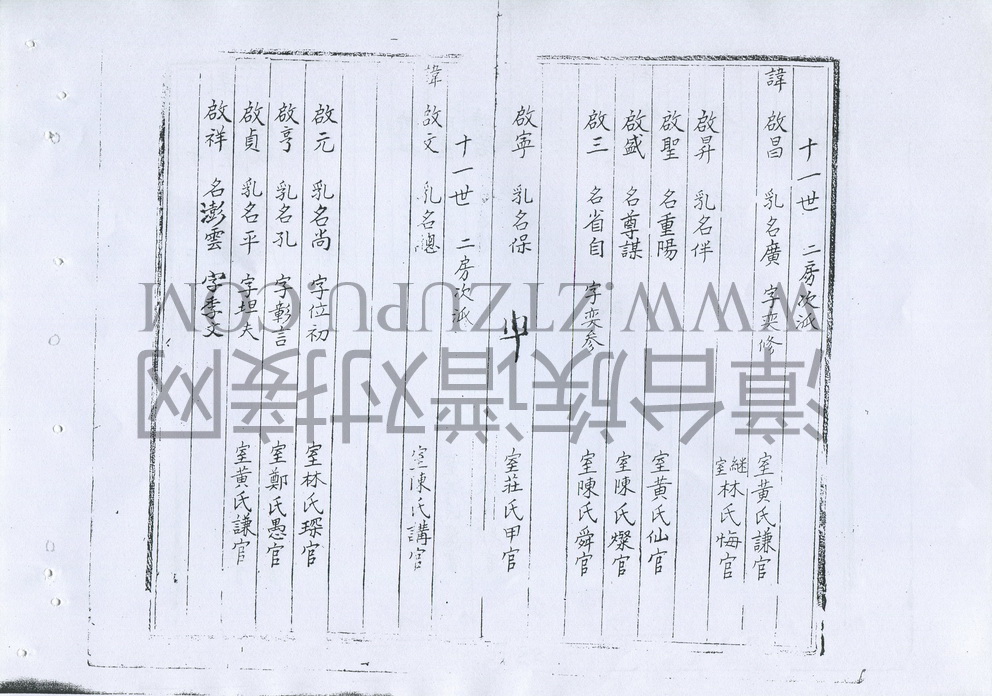 十一世 二房次派
諱 啟昌 乳名廣 字奕修 室黃氏謙官
繼室林氏悔官
啟昇 乳名伴
啟聖 名重陽 室黃氏仙官
啟盛 名尊謀 室陳氏燦官
啟三 名省自 字奕參 室陳氏舜官
啟寧 乳名保 室莊氏甲官
十一世 二房次派
諱 啟文 乳名總 室陳氏講官
啟元 乳名尚 字位初 室林氏琛官
啟亨 乳名孔 字彰言 室鄭氏愚官
啟貞 乳名平 字坦夫 室黃氏謙官
啟祥 名澎雲 字季文
WWW.ZTZUPU.COM
漳台族谱对接网